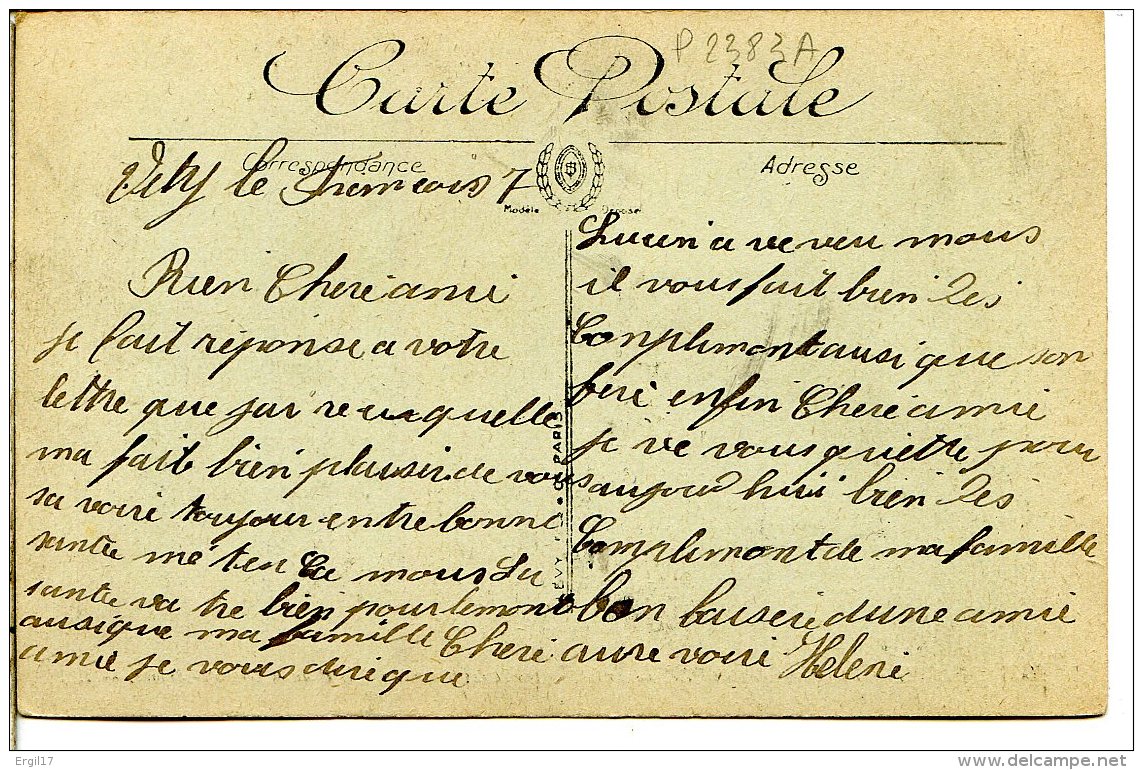 P 2383A
Carte Postale
Correspondance
Adresse
Modèle Déposé
Vitry le francois 7
Bien Chere amie
je fait réponse a votre
lettre que jai reçu quelle
ma fait bien plaisir de vous
sa voire toujour entre bonne
santée mé ten ca mous La
santée va tre bien pour le mont
ausique ma famille Chere
amie je vous dirique
LÉVY PARIS
Lucien a ve veu mous
il vous fait bien Les
Complimont ausi que son
frere enfin Chere amie
je ve vous quiette pour
aujourd huii bien Les
Complimont de ma famille
bon baiseré dune amie
aure voire Helene
Ergil17
delcampe.net